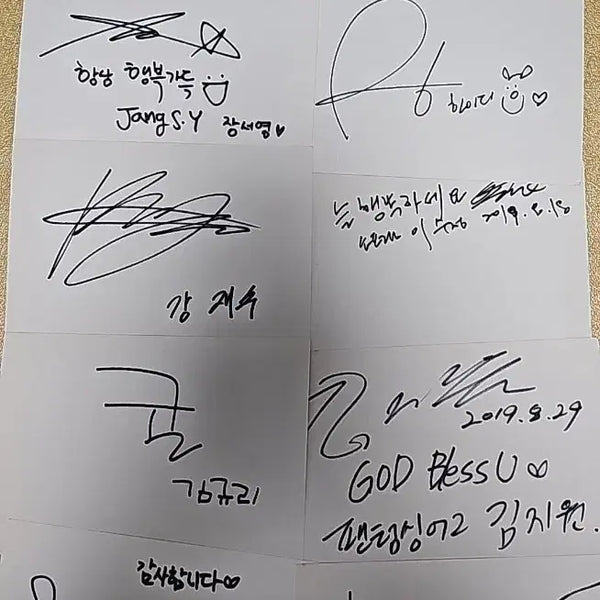 항상 행복가득
Jang S.Y 장서영
하이디
강 재수
늘 행복하세요
2019. 8. 18
김규리
2019. 8. 29
GOD Bless U
팬텀싱어2 김지원.
감사합니다